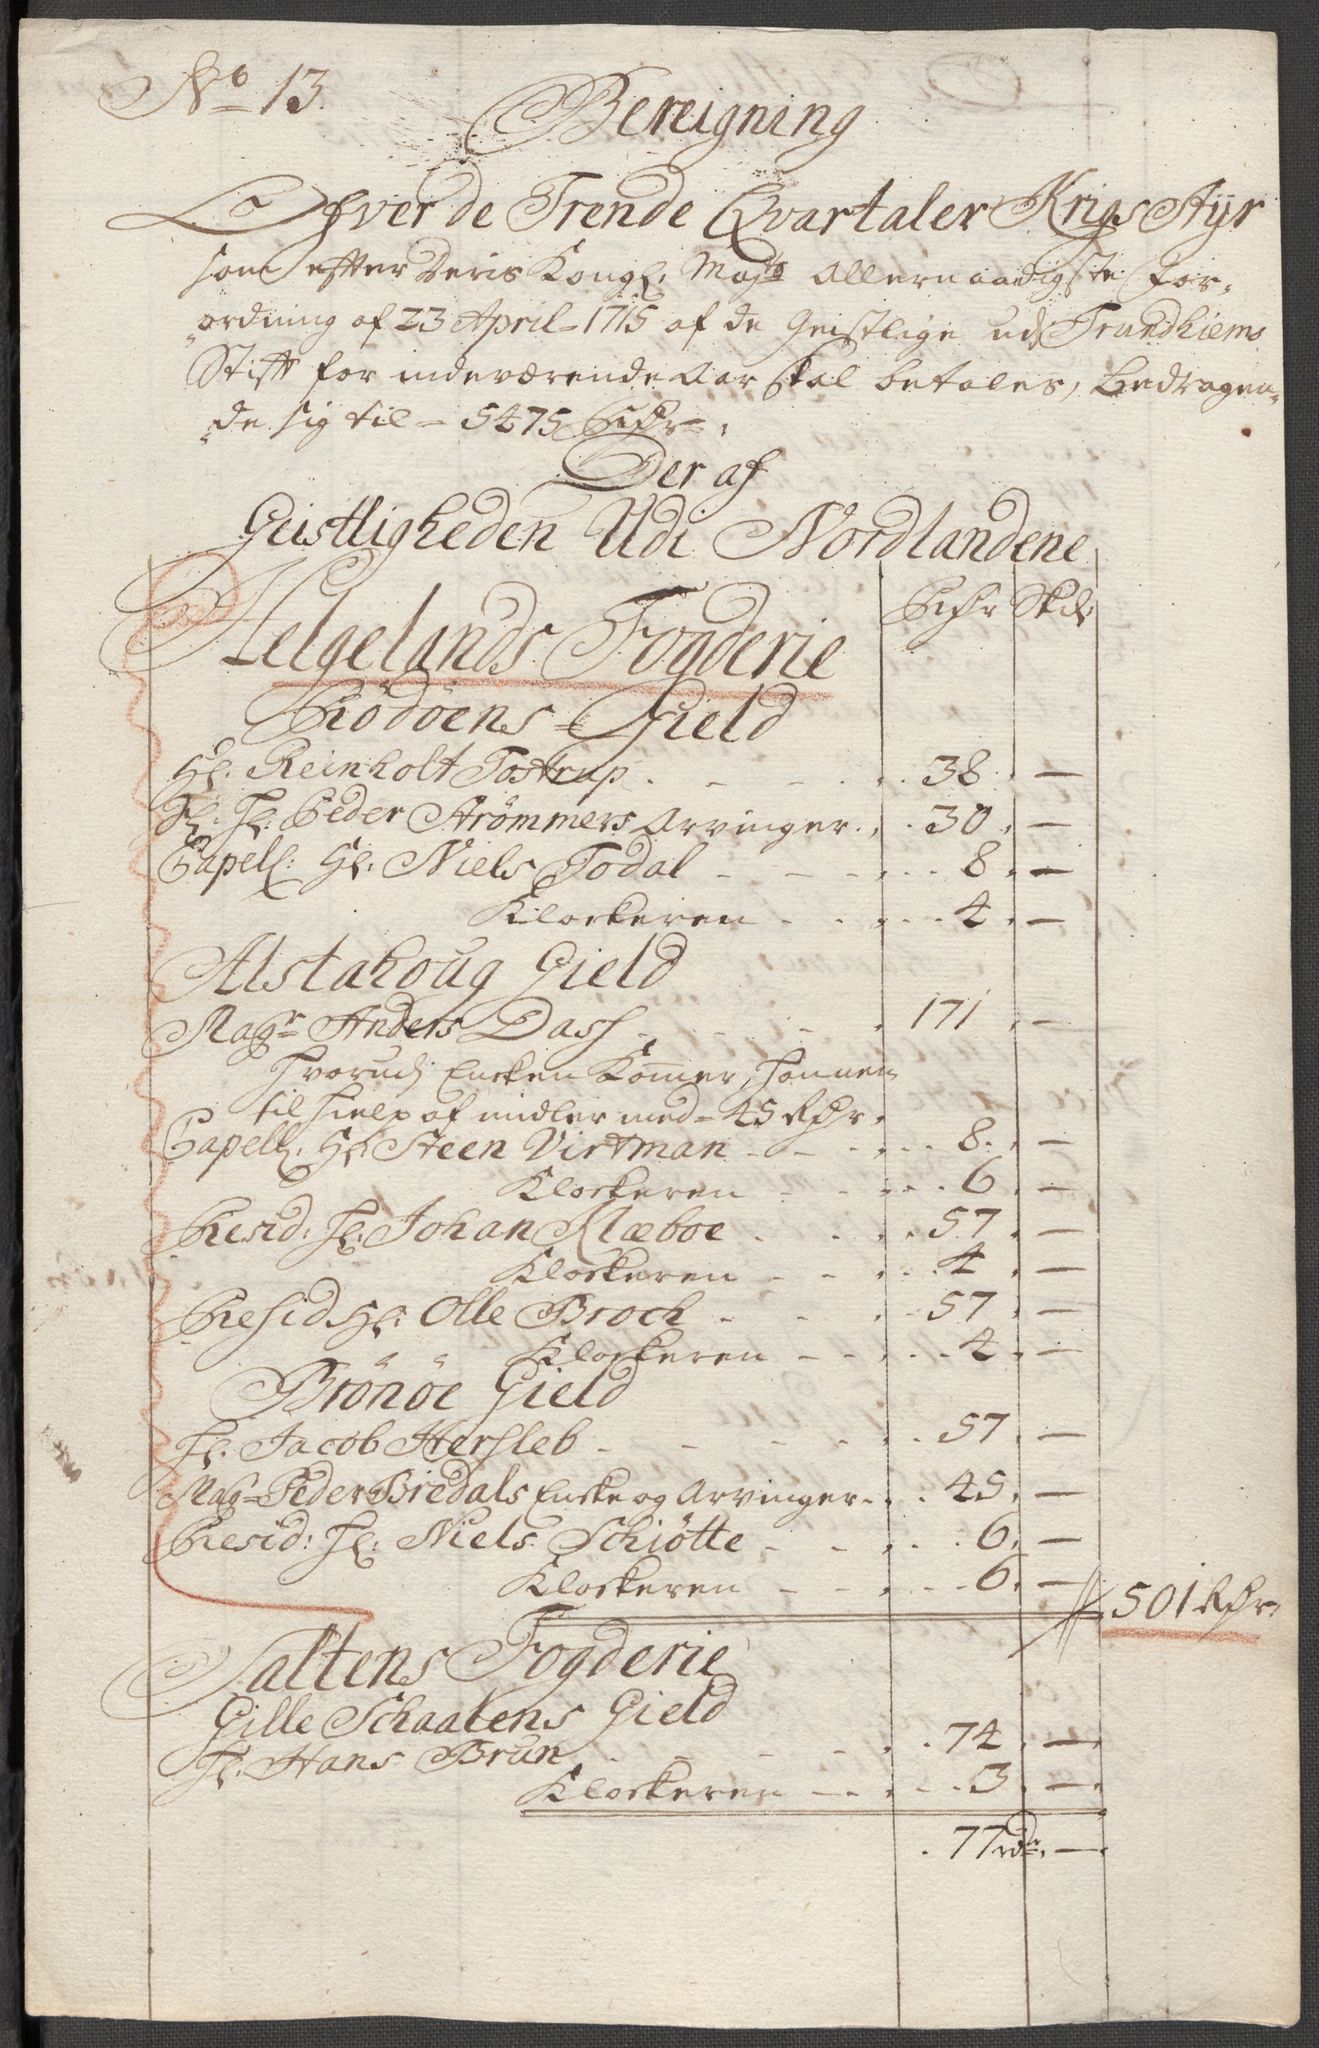 No 13
Bereigning
Ofver de Trende Qvartaler Krigs Styr
som efter Deris Kongl: Mayts Allernaadigste For„
„ordning af 23 April 1715 af de Geistlige udj Trundhiems
Stift for indeværende Aar skal betales, bedragen„
„de sig til 5475 Rdr
Der af
Geistligheden Udi Nordlandene
Rdr Skil
Helgelands Fogderie
Rödöens Gield
Hr. Reinholt Tostrup . . . . 38. —
Sl: Hr: Peder Strömmers Arvinger . . 30. —
Capell: Hr. Niels Todal . . . . 8. —
Klockeren . . . . 4. —
Alstahoug Gield
Magr Anders Dass . . . . 171. —
Hvorudj Encken Komer, hannem
til hielp af midler med 45 Rdr.
Capell. Hr Steen Virtman . . . . 8. —
Klockeren . . . . 6. —
Resid: Hr: Johan Klæboe . . . . 57. —
Klockeren . . . . 4. —
Resid Hr: Olle Broch . . . . 57. —
Klockeren . . . . 4. —
Brönöe Gield
Hr. Jacob Hersleb . . . . 57. —
Magr Peder Bredals Encke og Arvinger . . . 45. —
Resid: Hr: Niels Schiötte . . . . 6. —
Klockeren . . . . 6. —
501 Rdr
Saltens Fogderie
Gille Schaalens Gield
Hr. Hans Brun . . . . 74. —
Klockeren . . . . 3. —
77 rdr. —